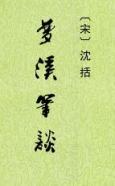 〔宋〕沈括
梦溪筆談